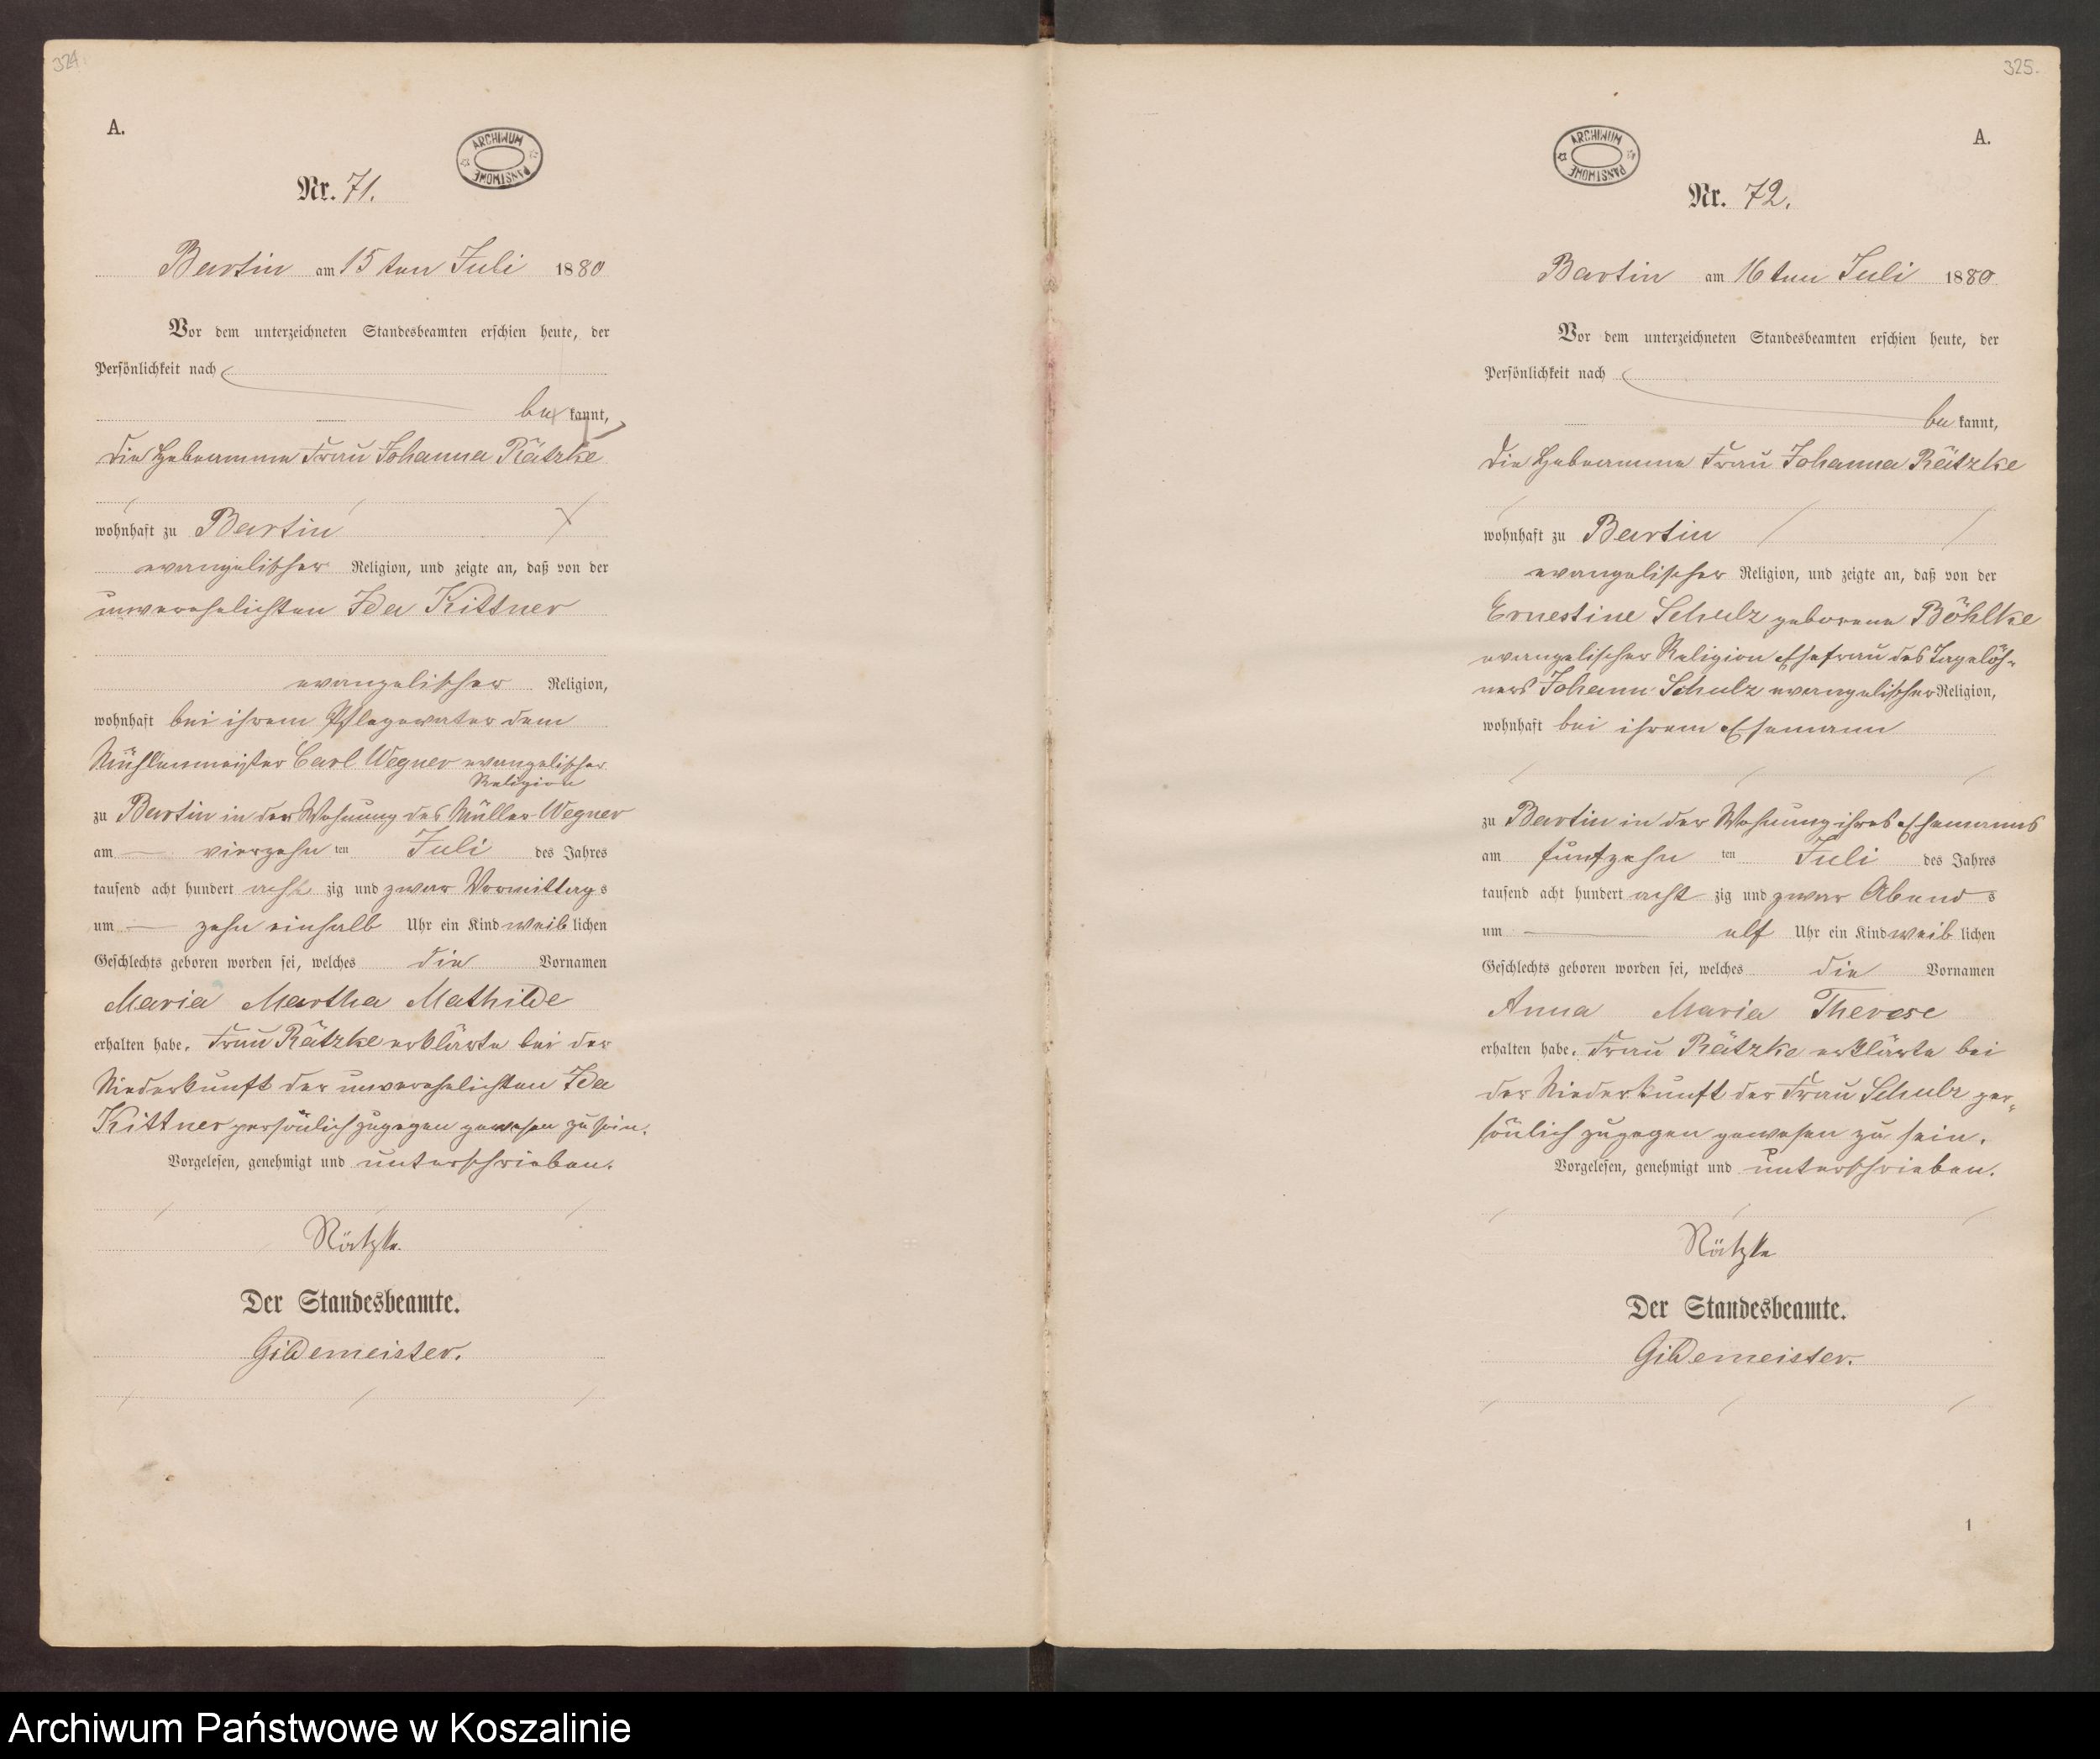 324.
A.
ARCHIWUM PAŃSTWOWE
Nr. 71.
Bartin am 15ten Juli 1880
Vor dem unterzeichneten Standesbeamten erschien heute, der
Persönlichkeit nach
be kannt,
die Hebeamme Frau Johanna Rätzke
wohnhaft zu Bartin
evangelischer Religion, und zeigte an, daß von der
unverehelichten Ida Kittner
evangelischer Religion,
wohnhaft bei ihrem Pflegevater dem
Mühlenmeister Carl Wegner evangelischer
Religion
zu Bartin in der Wohnung des Müller Wegner
am vierzehn ten Juli des Jahres
tausend acht hundert acht zig und zwar Vormittag s
um zehn einhalb Uhr ein Kind weib lichen
Geschlechts geboren worden sei, welches die Vornamen
Maria Martha Mathilde
erhalten habe. Frau Rätzke erklärte bei der
Niederkunft der unverehelichten Ida
Kittner persönlich zugegen gewesen zu sein.
Vorgelesen, genehmigt und unterschrieben.
Rätzke.
Der Standesbeamte.
Gildemeister.
325.
A.
ARCHIWUM PAŃSTWOWE
Nr. 72.
Bartin am 16ten Juli 1880
Vor dem unterzeichneten Standesbeamten erschien heute, der
Persönlichkeit nach
be kannt,
die Hebeamme Frau Johanna Rätzke
wohnhaft zu Bartin
evangelischer Religion, und zeigte an, daß von der
Ernestine Schulz geborene Böhlke
evangelischer Religion Ehefrau des Tagelöh-
ners Johann Schulz evangelischer Religion,
wohnhaft bei ihrem Ehemann
zu Bartin in der Wohnung ihres Ehemanns
am fünfzehn ten Juli des Jahres
tausend acht hundert acht zig und zwar Abend s
um elf Uhr ein Kind weib lichen
Geschlechts geboren worden sei, welches die Vornamen
Anna Maria Therese
erhalten habe. Frau Rätzke erklärte bei
der Niederkunft der Frau Schulz per-
sönlich zugegen gewesen zu sein.
Vorgelesen, genehmigt und unterschrieben.
Rätzke
Der Standesbeamte.
Gildemeister.
1
Archiwum Państwowe w Koszalinie